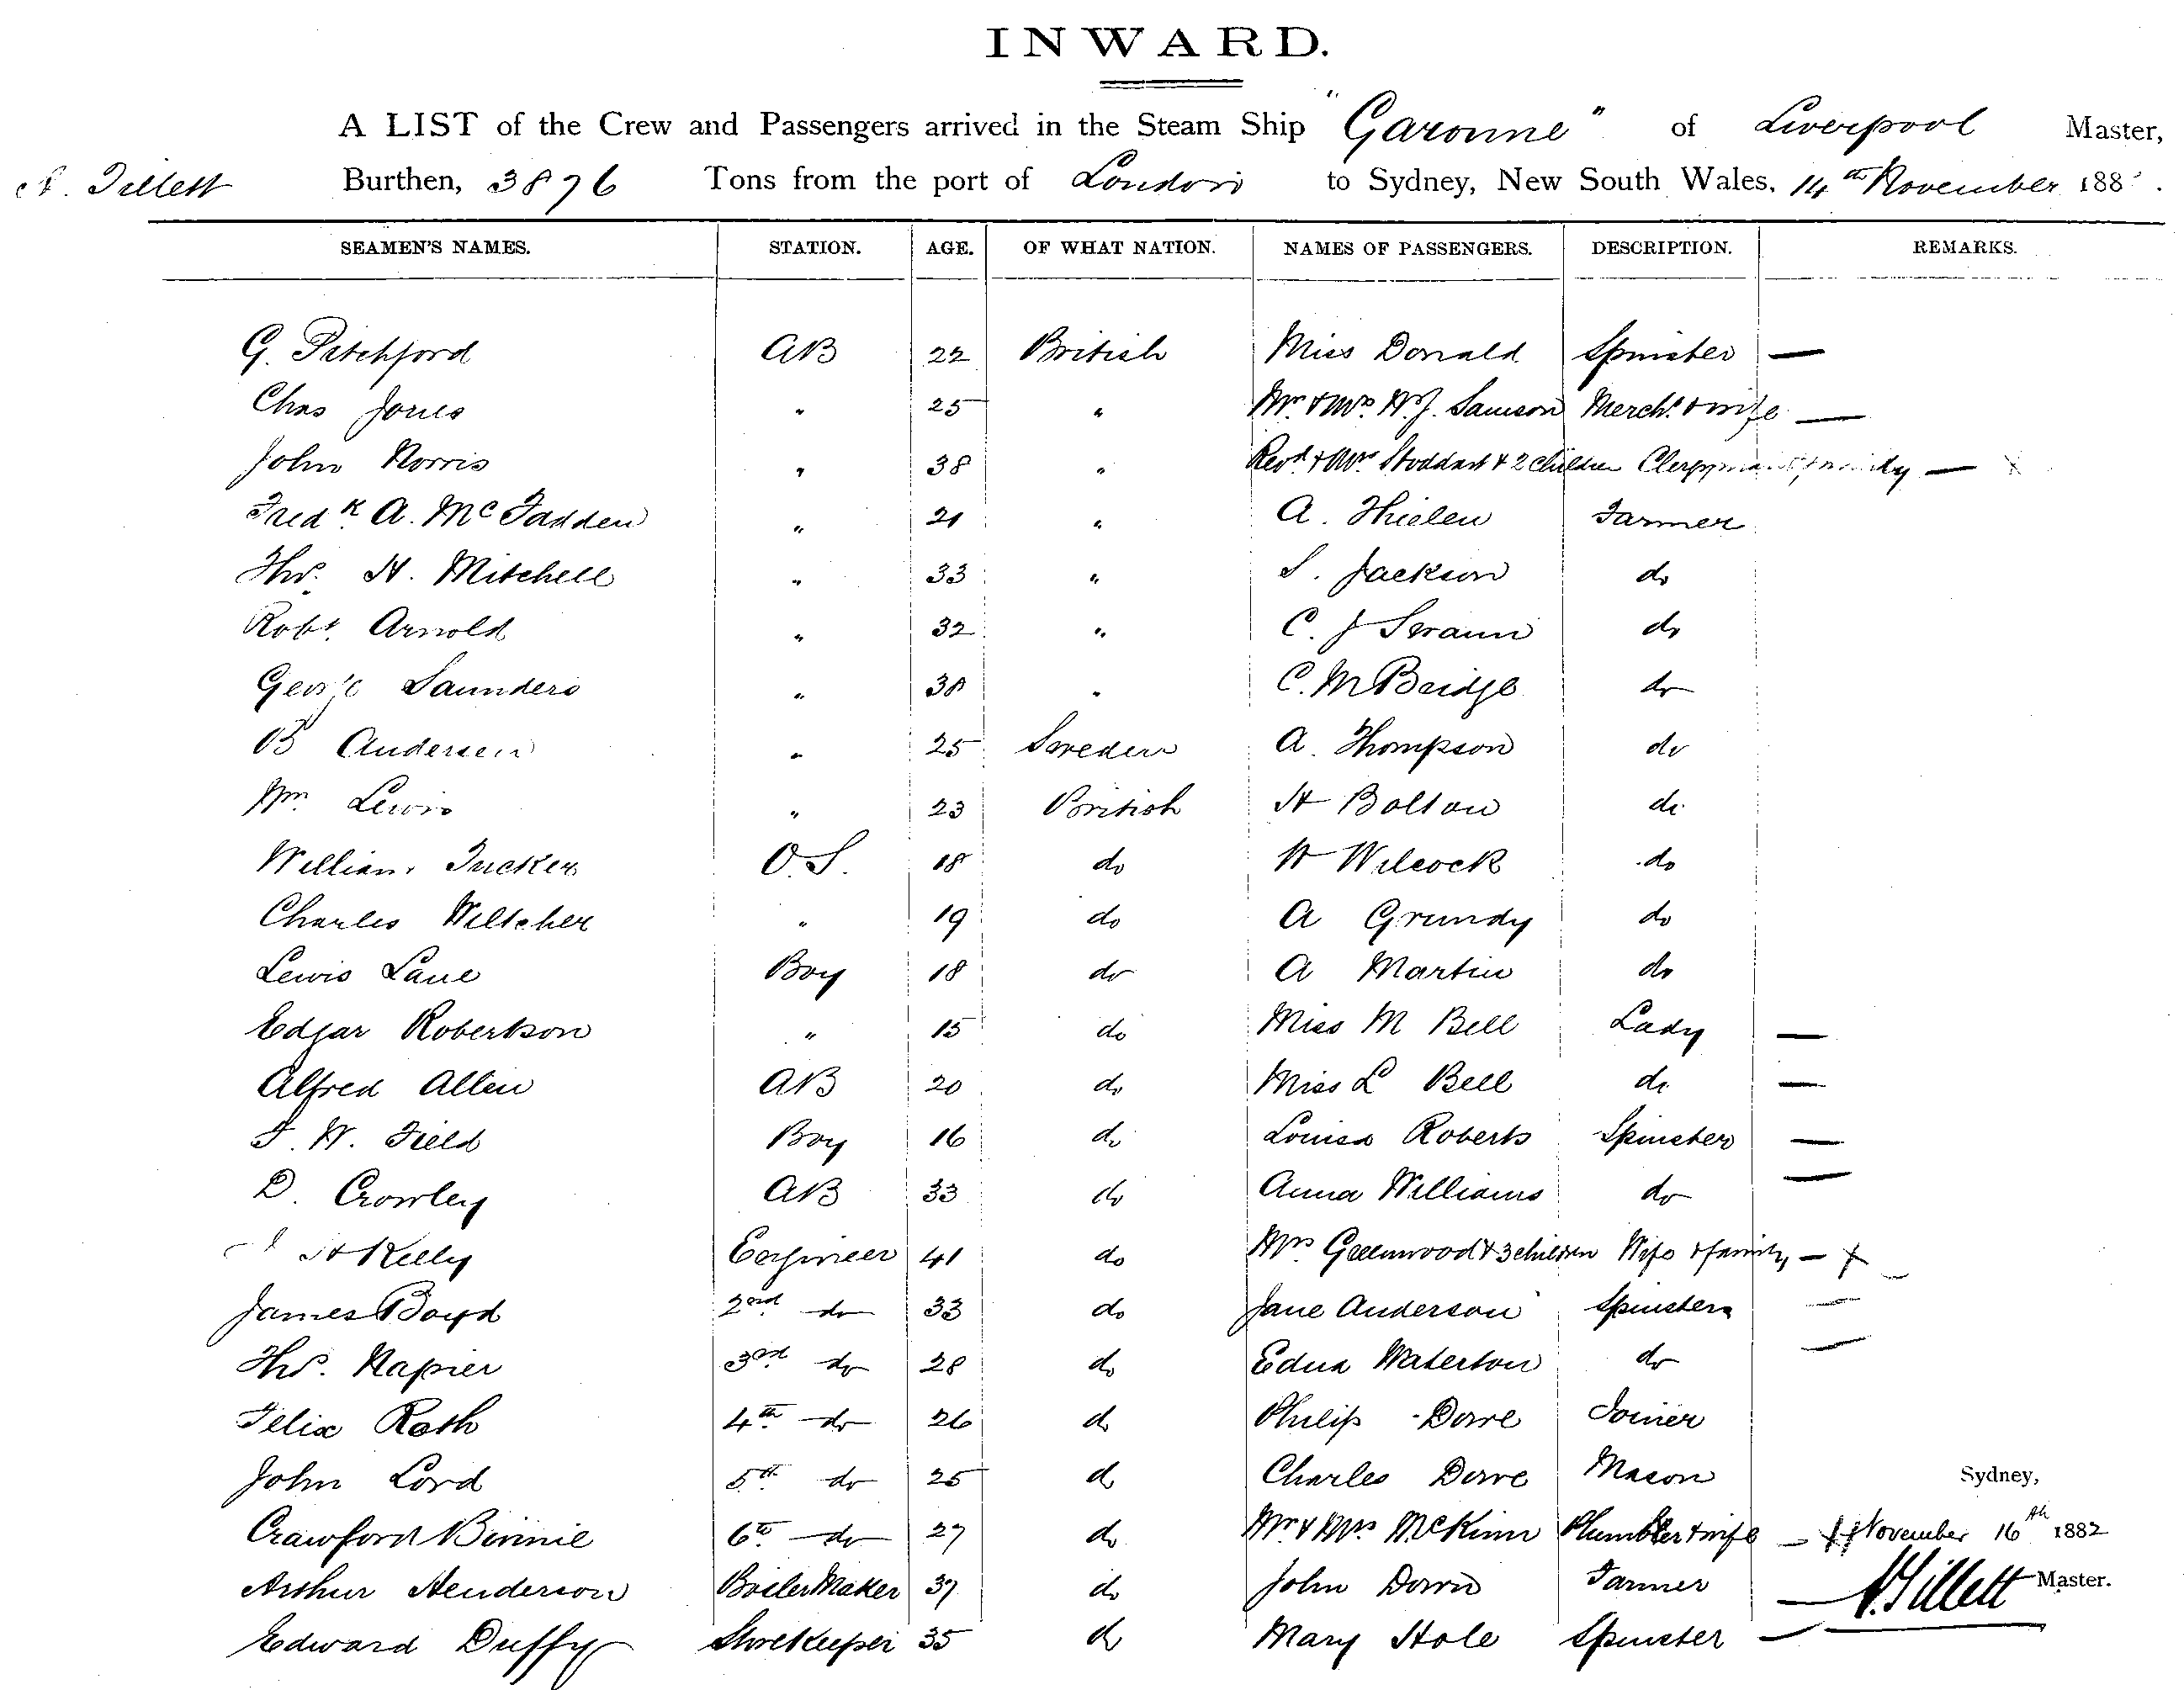 INWARD.
A LIST of the Crew and Passengers arrived in the Steam Ship "Garonne" of Liverpool Master,
A. Tillett Burthen, 3876 Tons from the port of London to Sydney, New South Wales, 14th November 188
SEAMEN'S NAMES. STATION. AGE. OF WHAT NATION. NAMES OF PASSENGERS. DESCRIPTION. REMARKS.
G. Pitchford AB 22 British Miss Donald Spinster —
Chas Jones " 25 " Mr. & Mrs. H.J. Samson Mercht. & wife —
John Norris " 38 " Revd. & Mrs Stoddart & 2 children Clergyman & family —
Fredk. A. McFadden " 21 " A. Thielen Farmer
Thos. H. Mitchell " 33 " S. Jackson do
Robt. Arnold " 32 " C. J Swann do
George Saunders " 38 " C. M Bridge do
B Andersen " 25 Sweden A. Thompson do
Wm. Lewis " 23 British H Bolton do
William Tucker O.S. 18 do H Wilcock do
Charles Wiltcher " 19 do A Grundy do
Lewis Lane Boy 18 do A Martin do
Edgar Robertson " 15 do Miss M Bell Lady —
Alfred Allen AB 20 do Miss L Bell do —
F. W. Field Boy 16 do Louisa Roberts Spinster —
D. Crowley AB 33 do Anna Williams do —
H Kelly Engineer 41 do Mrs Greenwood & 3 children Wife & family — x
James Boyd 2nd do 33 do Jane Anderson Spinster —
Thos. Napier 3rd do 28 do Edna Waterton do —
Felix Rath 4th do 26 do Philip Dowe Joiner
John Lord 5th do 25 do Charles Dowe Mason Sydney,
Crawford Binnie 6th do 27 do Mr & Mrs McKinn Plumber & wife — November 16th 1882
Arthur Henderson Boiler Maker 37 do John Down Farmer — A. Tillett Master.
Edward Duffy Storekeeper 35 do Mary Hole Spinster —